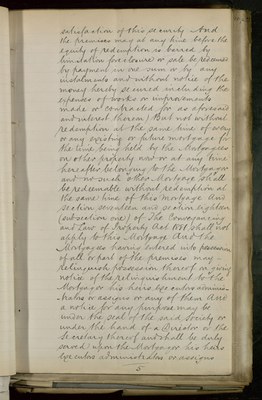 satisfaction of this security And
the premises may at any time before the
equity of redemption is barred by
limitation foreclosure or sale be redeemed
by payment in one sum or by any
instalments and without notice of the
money hereby secured including the
expenses of works or improvements
made or contracted for as aforesaid
and interest thereon But not without
redemption at the same time of every
or any existing or future mortgage for
the time being held by the Mortgagees
on other property now or at any time
hereafter belonging to the Mortgagor
and no such other Mortgage shall
be redeemable without redemption at
the same time of this Mortgage And
section seventeen and section eighteen
(subsection one) of The Conveyancing
and Law of Property Act 1881 shall not
apply to this Mortgage And the
Mortgagees having entered into possession
of all or part of the premises may
relinquish possession thereof on giving
notice of the relinquishment to the
Mortgagor his heirs executors adminis-
trators or assigns or any of them And
a notice for any purpose may be
under the seal of the said Society or
under the hand of a Director or the
Secretary thereof and shall be duly
served upon the Mortgagor his heirs
executors administrators or assigns
5